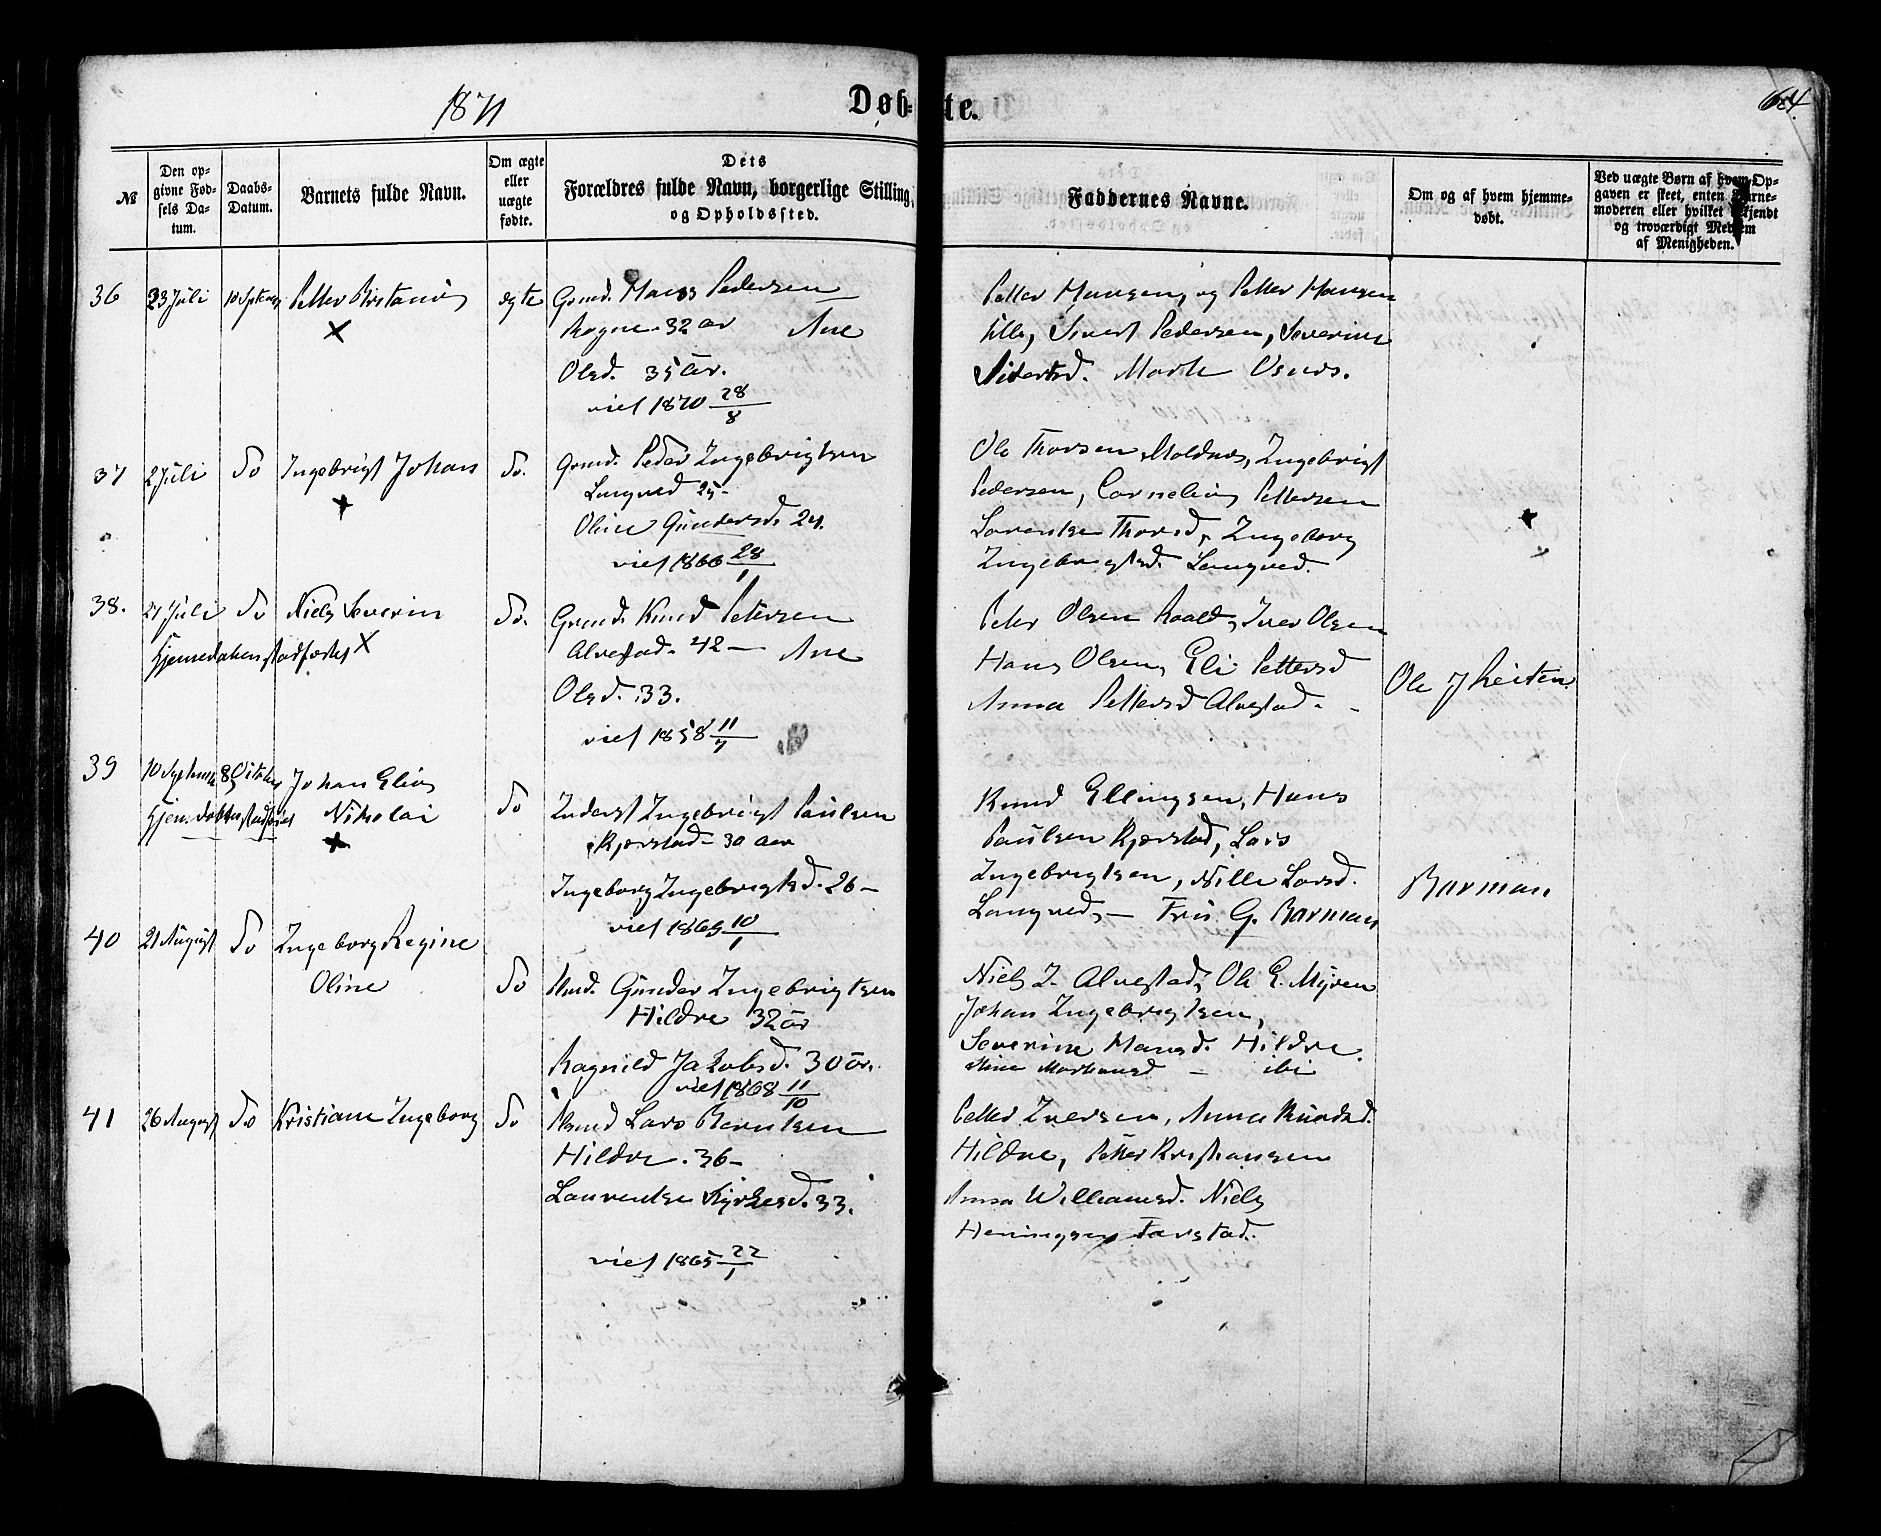 1871
Døb-te.
64.
№
Den op-
givne Fød-
sels Da-
tum.
Daabs-
Datum.
Barnets fulde Navn.
Om ægte
eller
uægte
fødte.
Dets
Forældres fulde Navn, borgerlige Stilling,
og Opholdssted.
Faddernes Navne.
Om og af hvem hjemme-
døbt.
Ved uægte Børn af hvem Op-
gaven er skeet, enten Barne-
moderen eller hvilket bekjendt
og troværdigt Medlem
af Menigheden.
36
23 Juli
Petter
ægte
Grmd. Hans Pedersen
Rogne. 32 aar Ane
Olsd. 35 år.
viet 1870 28/8
Petter Hansen, og Petter Hansen
Sivert Pedersen, Severine
Sivertsd.
37
2 Juli
Do
Ingebrigt Johan
Do.
Grmd. Peder Ingebrigtsen
Longved 25-
Oline Gundersd. 24.
viet 1866 28/1
Ole Thorsen Moldnes, Ingebrigt
Pedersen, Cornelius Pettersen
Lorentse Thorsd, Ingeborg
Ingebrigtsd. Longved.
38.
21 Juli
Do
Niels Severin
Do.
Hjemmedaaben stadfæstet X
Grmd. Knud Petersen
Alvestad. 42 - Ane
Olsd. 33.
viet 1858 11/7
Peter Olsen Roald, Iver Olsen
Hans Olsen, Eli Pettersd
Anna Pettersd Alvestad.
Ole J Reiten.
39
10 September
8 Oktober
Johan Elias
Nikolai
Do
Hjemmedaaben stadfæstet
Inderst Ingebrigt Paulsen
Kjerstad - 30 aar
Ingeborg Ingebrigtsd. 26 -
viet 1869 10/1
Knud Ellingsen, Hans
Paulsen Kjerstad, Lars
Ingebrigtsen, Nille Larsd.
Longved, - Fru G. Barman
Barman
40
21 August
Do
Ingeborg Regine
Oline
Do
Hmd. Gunder Ingebrigtsen
Hildre 32 år
Ragnild Jakobsd. 30 år.
viet 1868 11/10
Niels I. Alvestad, Ole E. Myren
Johan Ingebrigtsen,
Severine Hansd. Hildre.
Stine Marthinusd - ibi
41
26 August
Do
Kristiane Ingeborg
Do
Hmd Lars Berntsen
Hildre. 36 -
Laurentse Kyrkesd. 33.
viet 1865 22/1
Petter Iversen, Anna Knudsd.
Hildre, Petter Kristiansen
Anna Williamsd. Niels
Heningsen Farstad.